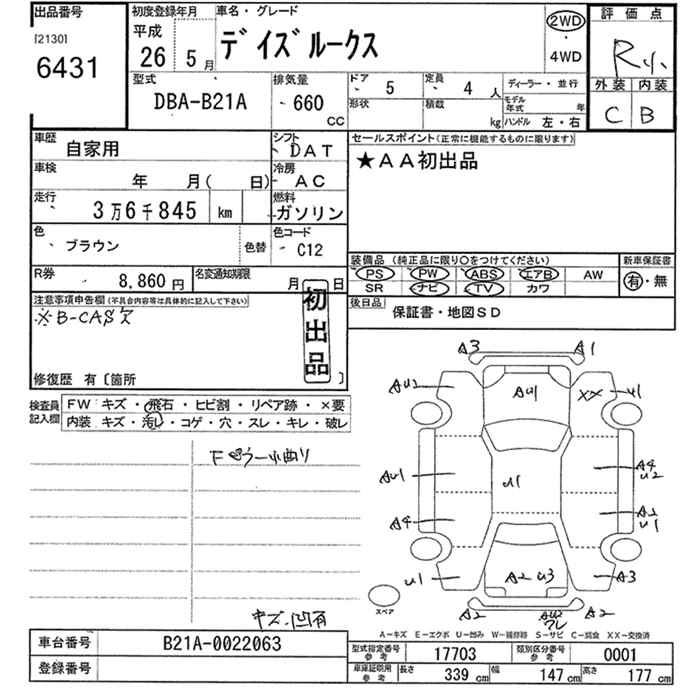 出品番号
[2130]
6431
初度登録年月
平成
26 5月
車名・グレード
デイズルークス
2WD
・
4WD
評価点
R小
外装 内装
C B
型式
DBA-B21A
排気量
660
CC
ドア
5
定員
4 人
ディーラー・並行
形状
積載
kg
モデル年式 年
ハンドル 左・右
車歴
自家用
シフト
DAT
車検
年 月( 日)
冷房
AC
走行
3万6千845 km
燃料
ガソリン
色
ブラウン
色替
色コード
C12
R券
8,860円
名変通知期限
月 日
セールスポイント(正常に機能するものに限ります)
★AA初出品
装備品(純正品に限り○をつけてください)
新車保証書
PS PW ABS エアB AW
SR ナビ TV カワ
有・無
後日品
保証書・地図SD
注意事項申告欄(不具合内容等は具体的に記入して下さい)
※B-CAS欠
初出品
修復歴 有〔箇所 〕
検査員記入欄
FW キズ・飛石・ヒビ割・リペア跡・×要
内装 キズ・汚レ・コゲ・穴・スレ・キレ・破レ
Fピラー小曲り
キズ、凹有
A3
A1
AU1
XX
U1
AU1
U1
A4
U2
A4
U1
U1
A2 U3
A3
A2
A2
スペア
A-キズ E-エクボ U-凹み W-補修跡 S-サビ C-腐食 XX-交換済
車台番号
B21A-0022063
登録番号
型式指定番号
参考
17703
類別区分番号
参考
0001
車庫証明用
参考
長さ
339 cm
幅
147 cm
高さ
177 cm